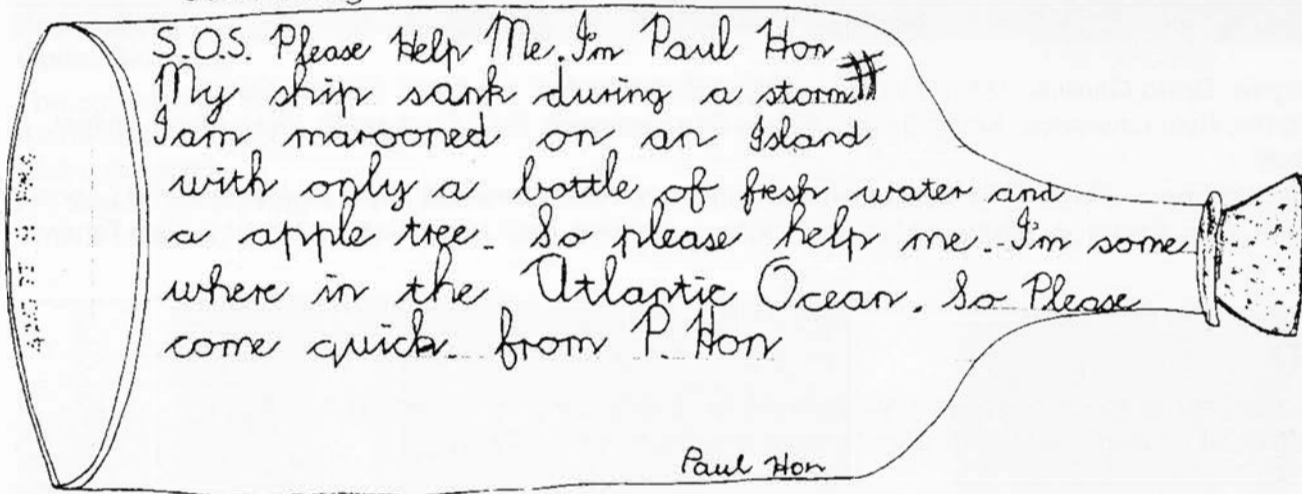 S.O.S. Please Help Me. I'm Paul Hon
My ship sank during a storm
I am marooned on an Island
with only a bottle of fresh water and
a apple tree. So please help me. I'm some
where in the Atlantic Ocean. So Please
come quick. from P. Hon
Paul Hon